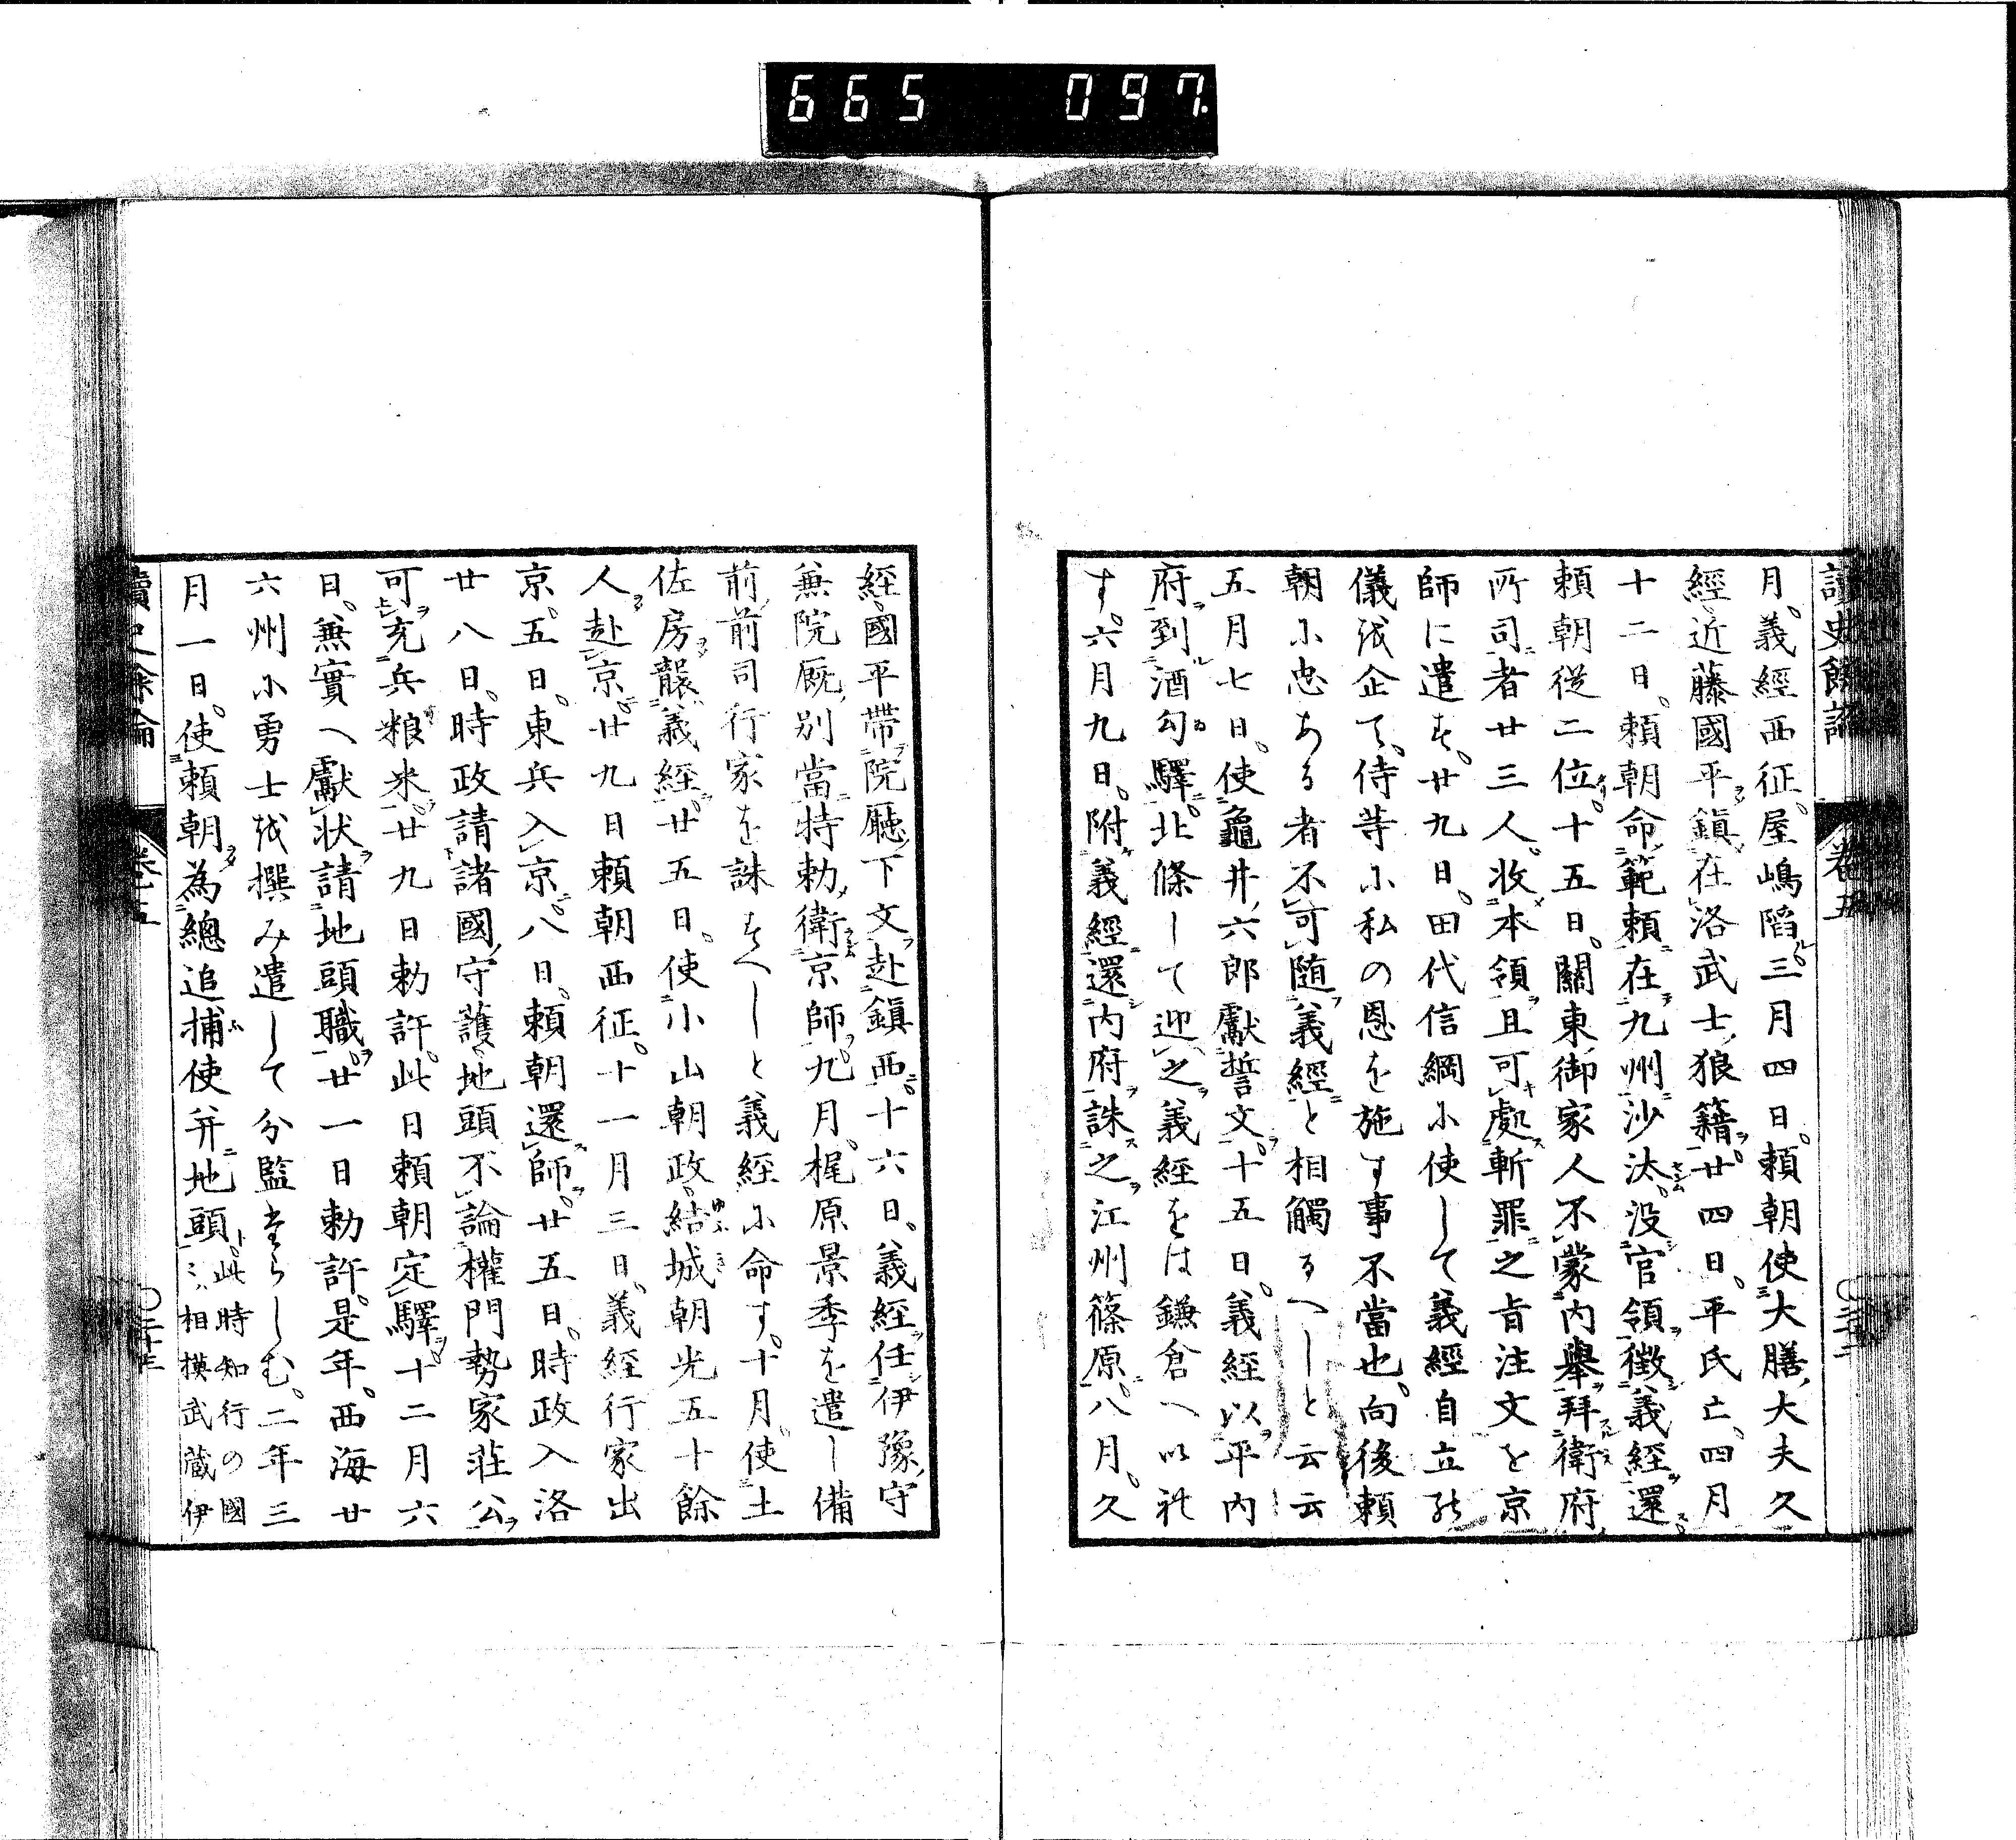 665 097
讀史餘論 卷五
月。義經西征。屋嶋陷。三月四日。頼朝使大膳大夫久
經、近藤國平鎮在洛武士狼籍。廿四日。平氏亡。四月
十二日。頼朝命範頼在九州沙汰没官領。徴義經還。
頼朝従二位。十五日。關東御家人不蒙内擧拜衛府
所司者廿三人。收本領且可處斬罪之旨注文を京
師に遣す。廿九日。田代信綱小使して義經自立の
儀を企て、侍等小私の恩を施す事不當也。向後頼
朝小忠ある者不可随義經と相觸るへしと云云
五月七日。使龜井六郎獻誓文。十五日。義經以平内
府到酒匂驛。北條して迎之義經をは鎌倉へ以れ
す。六月九日。附義經還内府誅之江州篠原。八月。久
經、國平帶院廳下文赴鎮西。十六日。義經任伊豫守
兼院厩別當特勅衛京師。九月。梶原景季を遣し備
前前司行家を誅すへしと義經小命す。十月。使土
佐房襲義經。廿五日。使小山朝政、結城朝光五十餘
人赴京。廿九日頼朝西征。十一月三日。義經行家出
京。五日。東兵入京。八日。頼朝還師。廿五日。時政入洛
廿八日。時政請諸國守護、地頭不論權門勢家荘公
可充兵粮米。廿九日勅許。此日頼朝定驛。十二月六
日。兼實へ獻状請地頭職。廿一日勅許。是年。西海廿
六州小勇士を撰み遣して分監せらしむ。二年三
月一日。使頼朝為總追捕使并地頭。此時知行の國
ミ、相摸武蔵伊
讀史餘論 卷五